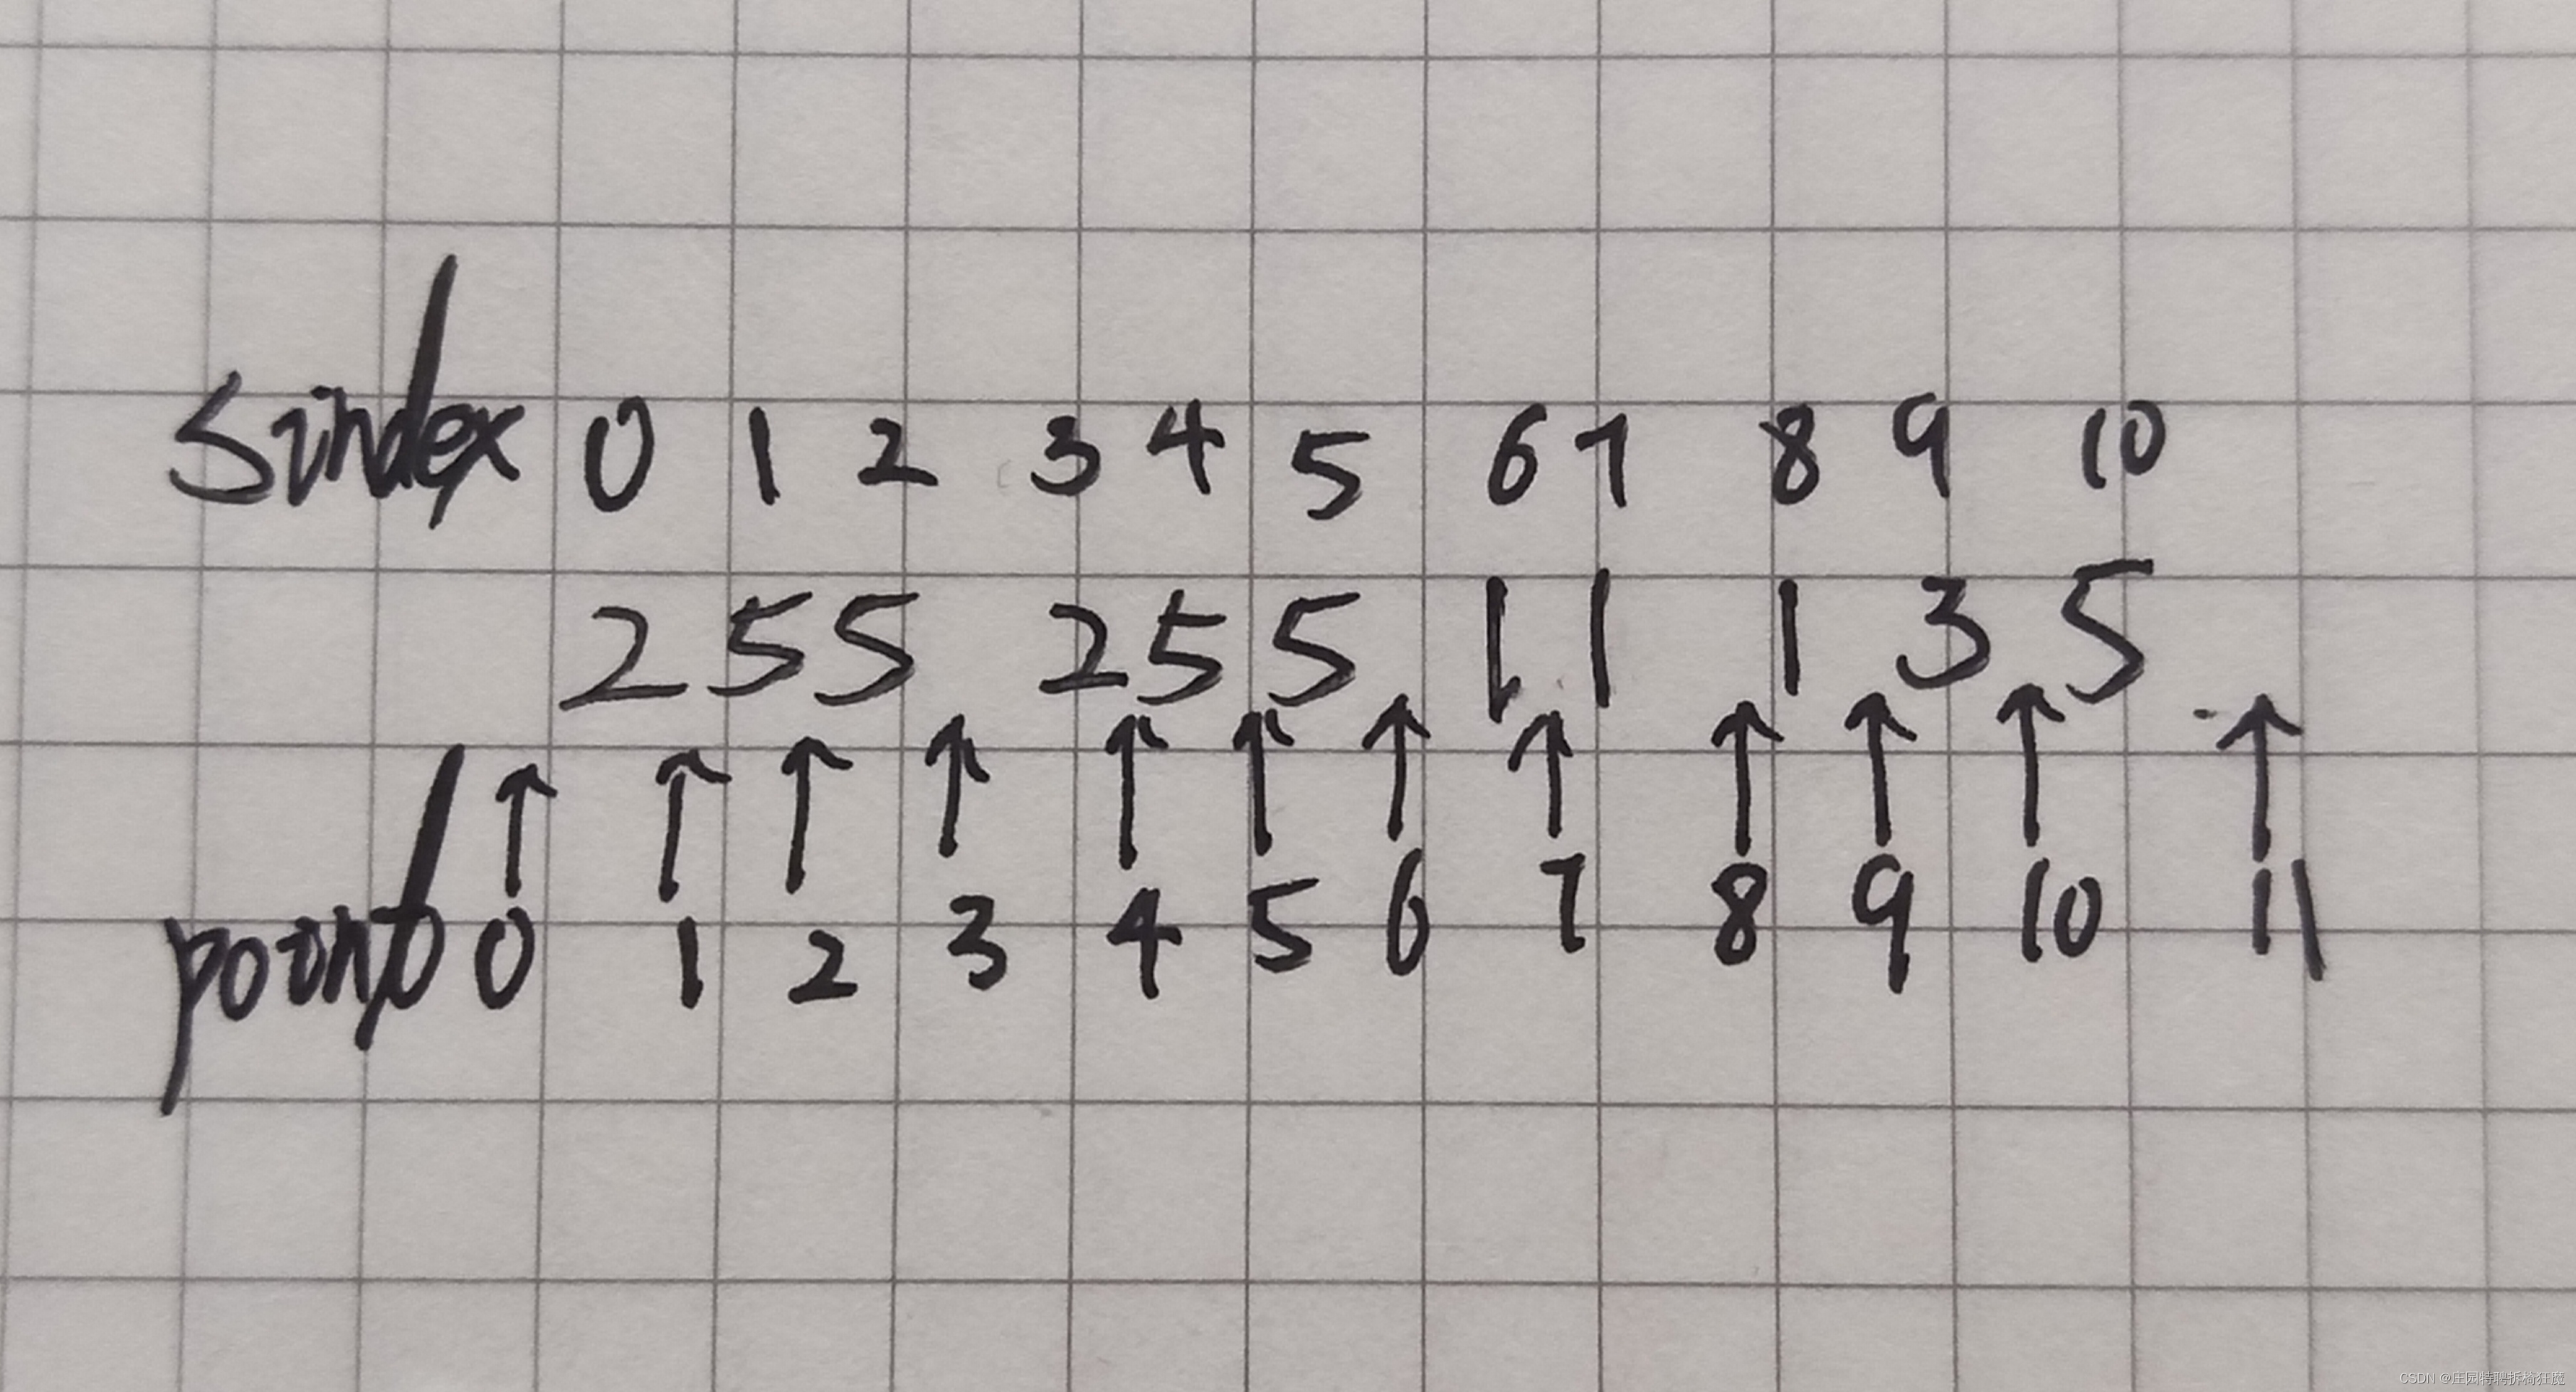 Sindex 0 1 2 3 4 5 6 7 8 9 10
2 5 5 2 5 5 1 1 1 3 5
↑ ↑ ↑ ↑ ↑ ↑ ↑ ↑ ↑ ↑ ↑ ↑
point 0 1 2 3 4 5 6 7 8 9 10 11
CSDN @庄园特聘拆椅狂魔